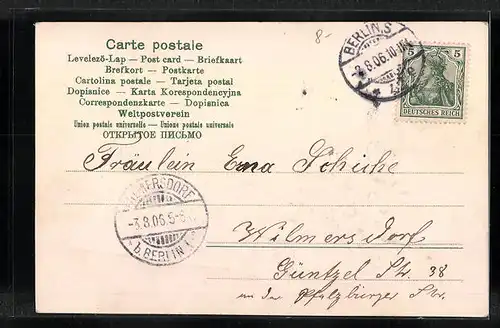 8-
Carte postale
Levelező-Lap — Post card — Briefkaart
Brefkort — Postkarte
Cartolina postale — Tarjeta postal
Dopisnice — Karta Korespondencyjna
Correspondenzkarte — Dopisnica
Weltpostverein
Union postale universelle — Unione postale universale
ОТКРЫТОЕ ПИСЬМО
BERLIN, S
8.06.10-11
5 5
DEUTSCHES REICH
Fräulein Erna
WILMERSDORF
-3.8.06.5-6
b. BERLIN 1
Wilmersdorf
Güntzel Str. 38
an der Pfalzburger Str.